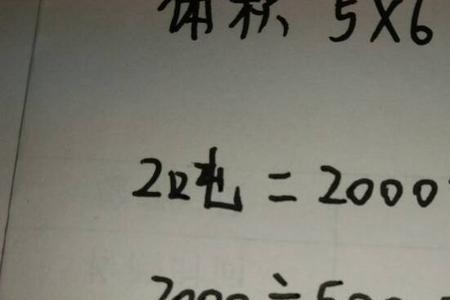 体积 5×6
2吨 = 2000
2000÷500